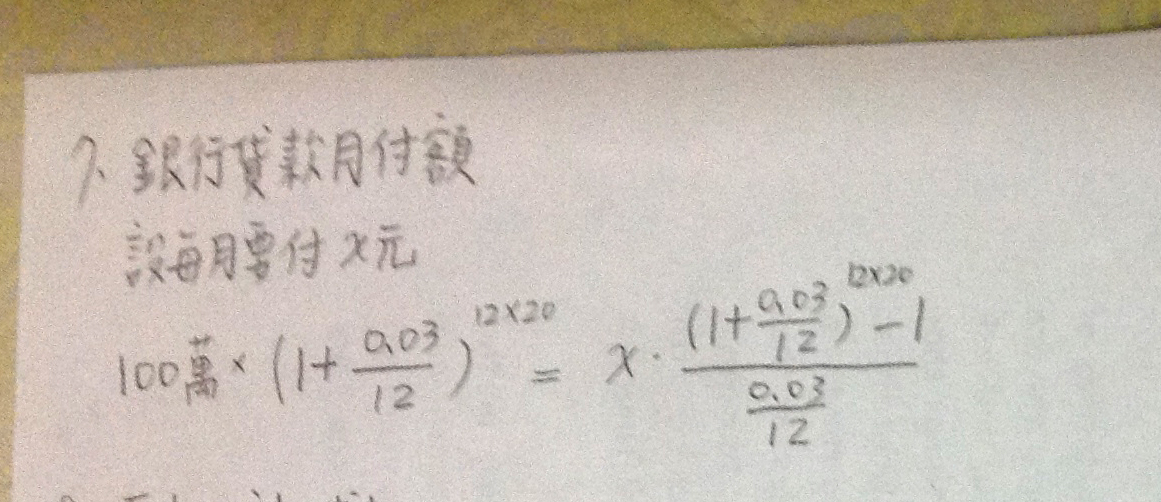 7、銀行貸款月付額
設每月要付x元
100萬×(1+0.03/12)^12×20 = x·((1+0.03/12)^12×20 -1)/(0.03/12)